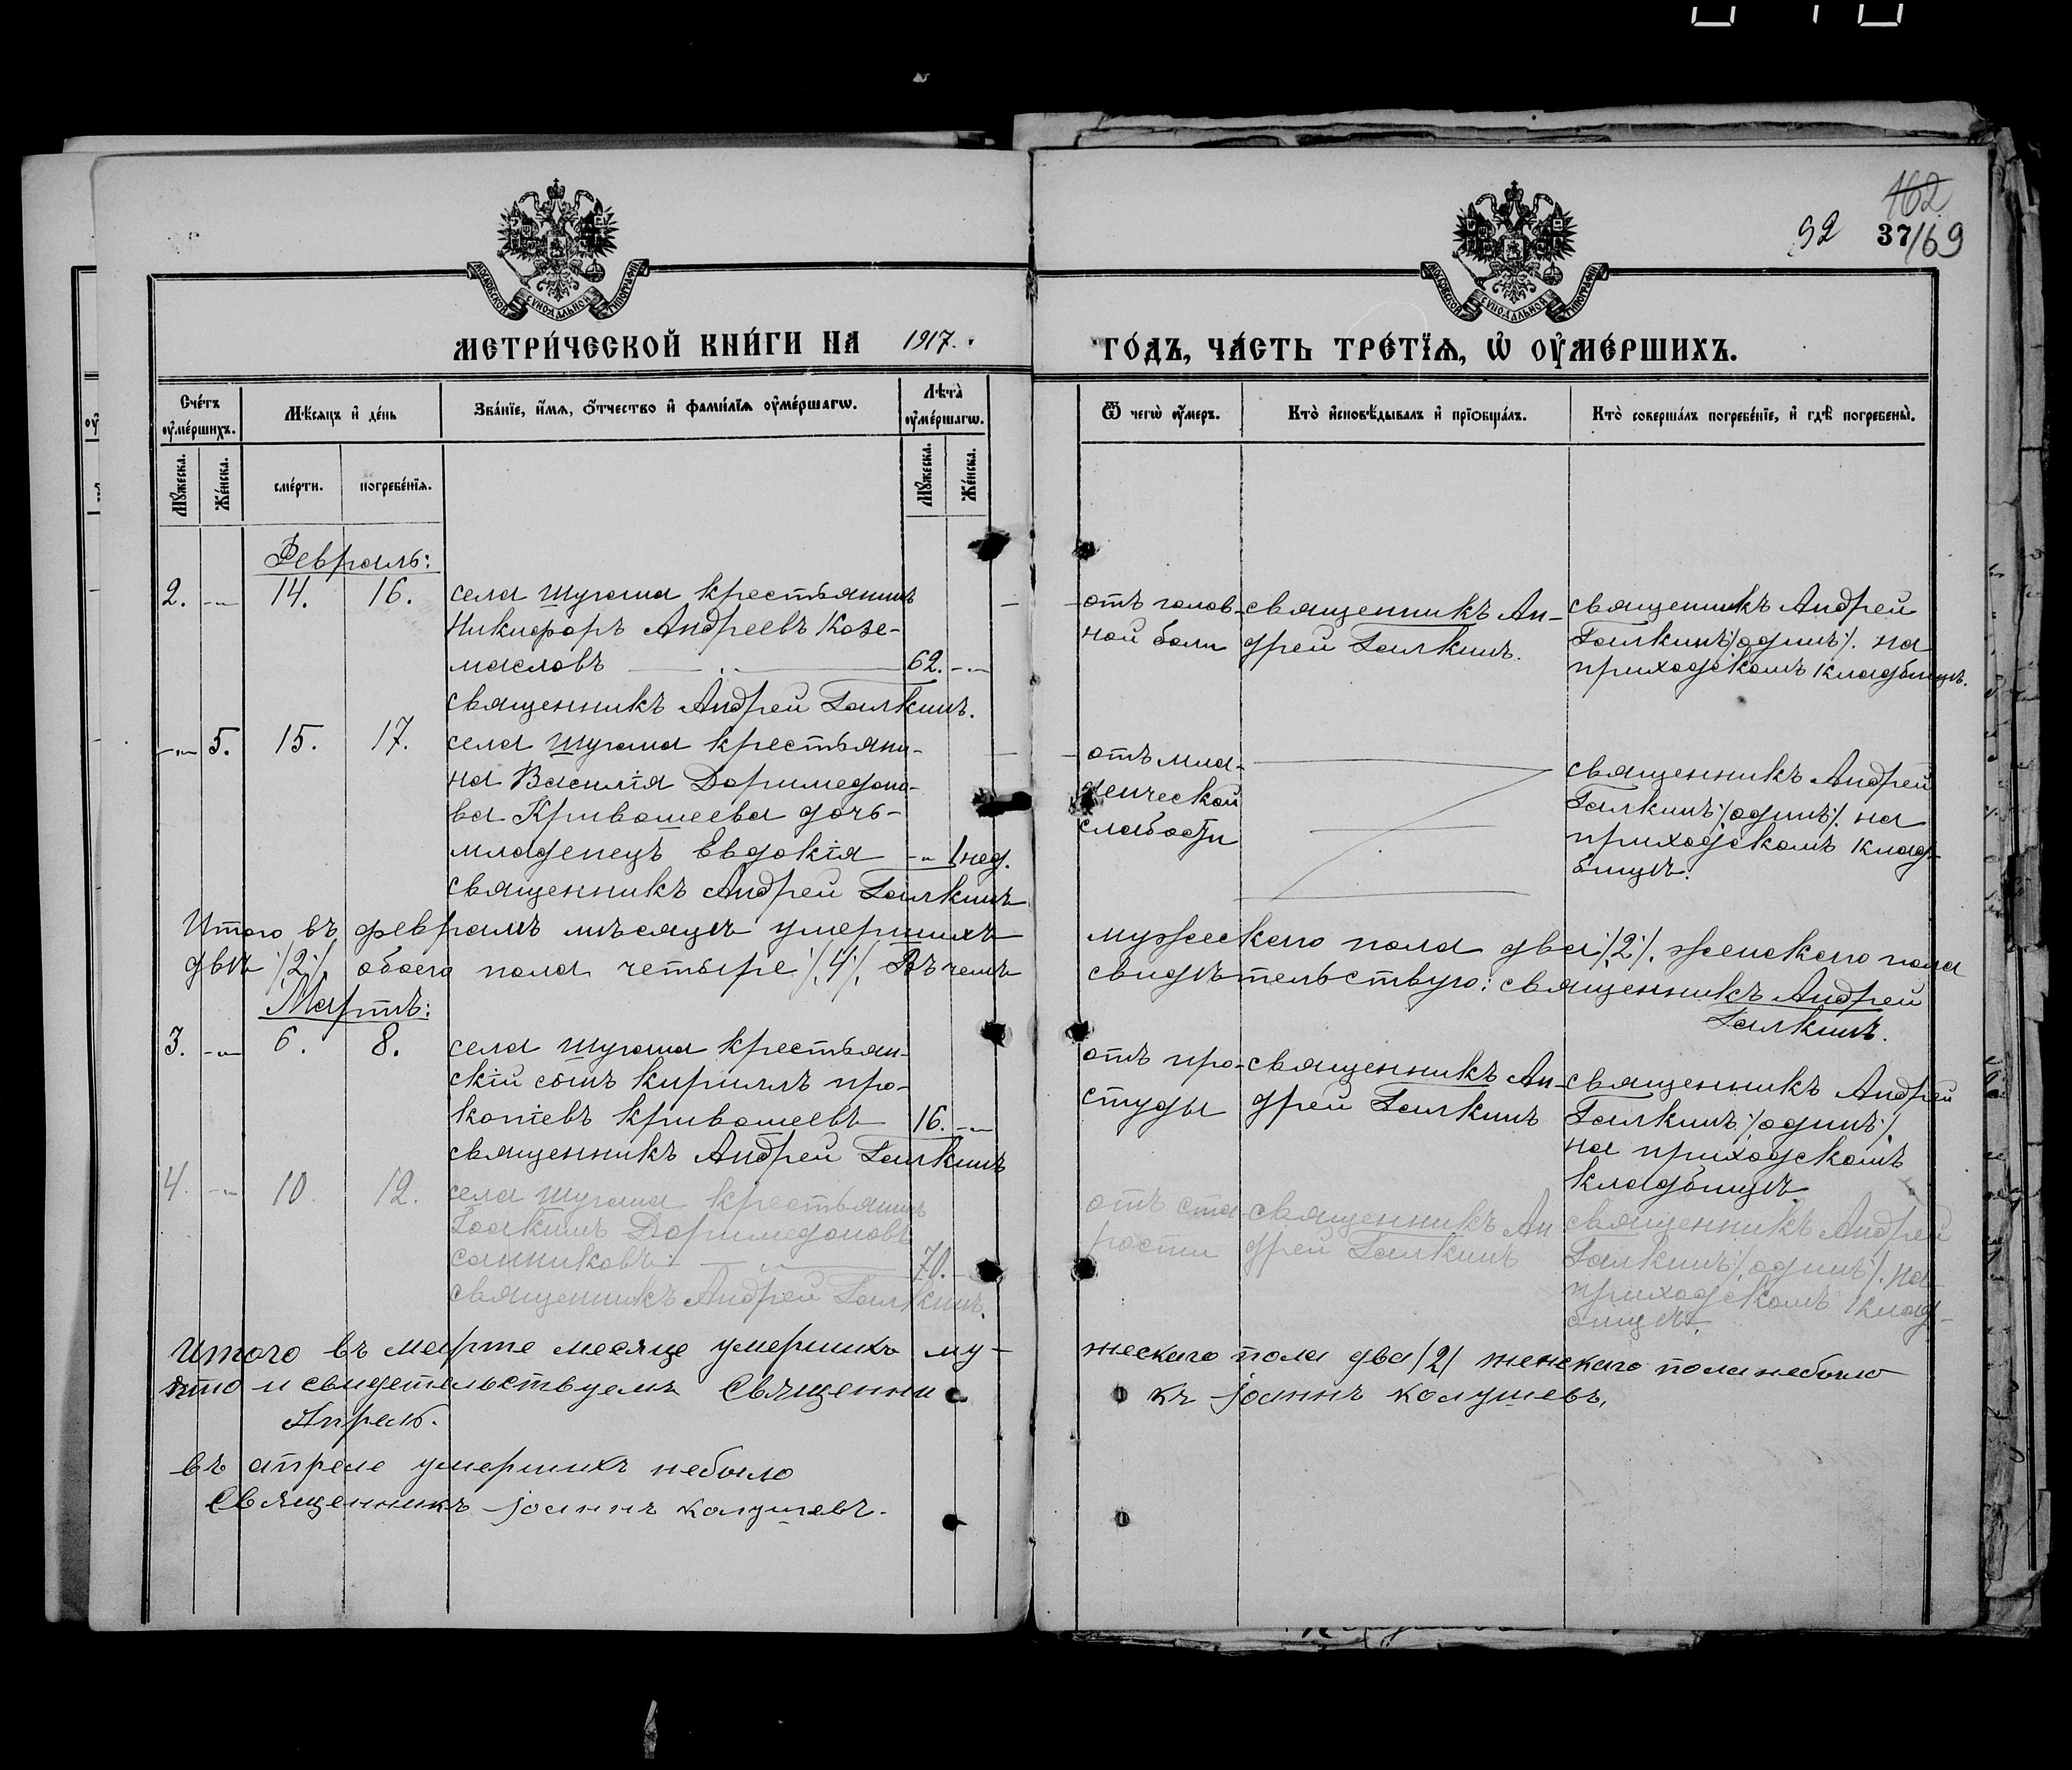 162
92 37/69
МОСКОВСКОЙ СѴНОДАЛЬНОЙ ТИПОГРАФІИ
МОСКОВСКОЙ СѴНОДАЛЬНОЙ ТИПОГРАФІИ
МЕТРИ́ЧЕСКОЙ КНИ́ГИ НА 1917.
ГО́ДЪ, ЧА́СТЬ ТРЕ́ТЇѦ, Ѡ҆ ОУ҆МЕ́РШИХЪ.
Сче́тъ оу҆ме́ршихъ.
Мѣ́сяцъ и҆ де́нь
Зва́нїе, и҆́мѧ, ѻ҆́тчество и҆ фами́лїѧ оу҆ме́ршагѡ.
Лѣ́та̀ оу҆ме́ршагѡ.
Ѿ чегѡ̀ оу҆́меръ.
Кто̀ и҆сповѣ́дывалъ и҆ прїѡбща́лъ.
Кто̀ соверша́лъ погребе́нїе, и҆ гдѣ̀ погребены̀.
Мꙋ́жеска. Же́нска. сме́рти. погребе́нїѧ. Мꙋ́жеска. Же́нска.
Февраль:
2. -"- 14. 16. села Шугана крестьянинъ
Никифоръ Андреевъ Козе-
масловъ 62. -"-
священникъ Андрей Галкинъ.
отъ голов-
ной боли
священникъ Ан-
дрей Галкинъ.
священникъ Андрей
Галкинъ /одинъ/. на
приходскомъ кладбищѣ.
-"- 5. 15. 17. села Шугана крестьяни-
на Василія Доримедоно-
ва Кривошеева дочь-
младенецъ Евдокія -"- 1 нед.
священникъ Андрей Галкинъ
отъ мла-
денческой
слабости
священникъ Андрей
Галкинъ /одинъ/. на
приходскомъ клад-
бищѣ.
Итого въ февралѣ мѣсяцѣ умершихъ мужескаго пола два /2/. женскаго пола
двѣ /2/. обоего пола четыре /4/. Въ чемъ свидѣтельствую: священникъ Андрей
Галкинъ.
Мартъ:
3. -"- 6. 8. села Шугана крестьян-
скій сынъ Кириллъ Про-
копіевъ Кривошеевъ 16. -"-
священникъ Андрей Галкинъ
отъ про-
студы
священникъ Ан-
дрей Галкинъ
священникъ Андрей
Галкинъ /одинъ/.
на приходскомъ
кладбищѣ.
4. -"- 10. 12. села Шугана крестьянинъ
Іоакимъ Доримедоновъ
Санниковъ 70.
священникъ Андрей Галкинъ.
отъ ста-
рости
священникъ Ан-
дрей Галкинъ
священникъ Андрей
Галкинъ /одинъ/. на
приходскомъ клад-
бищѣ.
Итого въ марте месяце умершихъ му-жескаго пола два /2/ женскаго пола небыло
что и свидетельствуемъ Священникъ Іоаннъ
Апрель.
въ апреле умершихъ небыло
Священникъ Іоаннъ